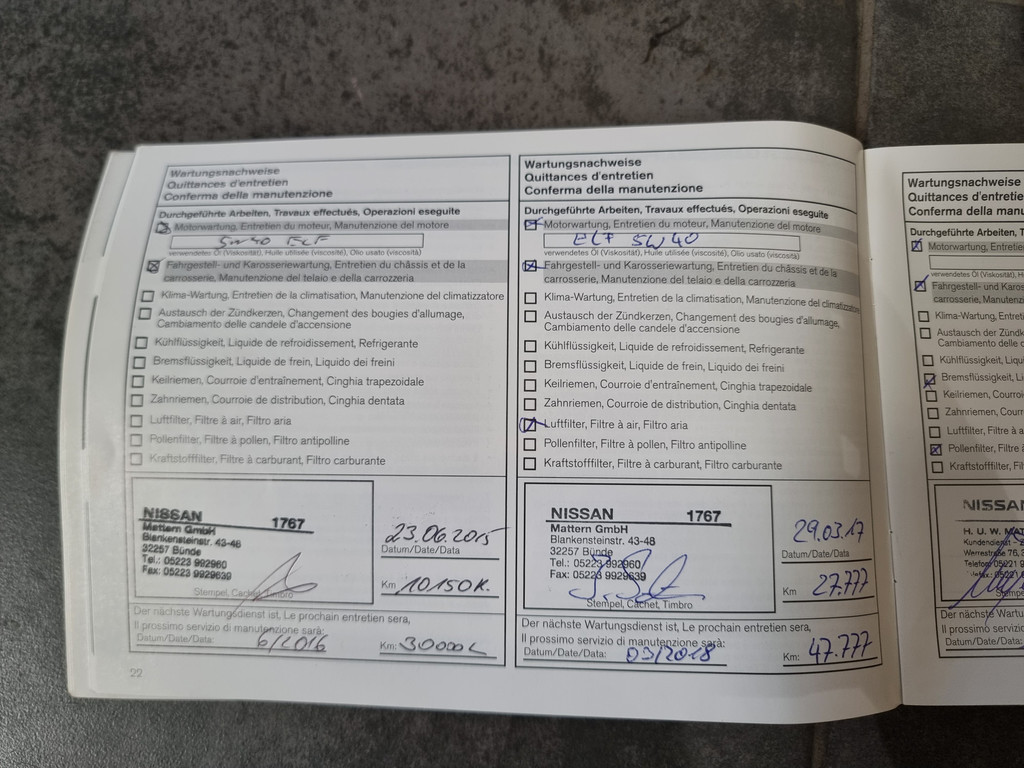 Wartungsnachweise
Quittances d'entretien
Conferma della manutenzione
Durchgeführte Arbeiten, Travaux effectués, Operazioni eseguite
Motorwartung, Entretien du moteur, Manutenzione del motore
5W40 ELF
verwendetes Öl (Viskosität), Huile utilisée (viscosité), Olio usato (viscosità)
Fahrgestell- und Karosseriewartung, Entretien du châssis et de la
carrosserie, Manutenzione del telaio e della carrozzeria
Klima-Wartung, Entretien de la climatisation, Manutenzione del climatizzatore
Austausch der Zündkerzen, Changement des bougies d'allumage,
Cambiamento delle candele d'accensione
Kühlflüssigkeit, Liquide de refroidissement, Refrigerante
Bremsflüssigkeit, Liquide de frein, Liquido dei freini
Keilriemen, Courroie d'entraînement, Cinghia trapezoidale
Zahnriemen, Courroie de distribution, Cinghia dentata
Luftfilter, Filtre à air, Filtro aria
Pollenfilter, Filtre à pollen, Filtro antipolline
Kraftstofffilter, Filtre à carburant, Filtro carburante
NISSAN 1767
Mattern GmbH
Blankensteinstr. 43-48
32257 Bünde
Tel.: 05223 992960
Fax: 05223 9929639
Stempel, Cachet, Timbro
23.06.2015
Datum/Date/Data
Km 10150K.
Der nächste Wartungsdienst ist, Le prochain entretien sera,
Il prossimo servizio di manutenzione sarà:
Datum/Date/Data: 6/2016 Km: 30000
22
Wartungsnachweise
Quittances d'entretien
Conferma della manutenzione
Durchgeführte Arbeiten, Travaux effectués, Operazioni eseguite
Motorwartung, Entretien du moteur, Manutenzione del motore
ELF 5W40
verwendetes Öl (Viskosität), Huile utilisée (viscosité), Olio usato (viscosità)
Fahrgestell- und Karosseriewartung, Entretien du châssis et de la
carrosserie, Manutenzione del telaio e della carrozzeria
Klima-Wartung, Entretien de la climatisation, Manutenzione del climatizzatore
Austausch der Zündkerzen, Changement des bougies d'allumage,
Cambiamento delle candele d'accensione
Kühlflüssigkeit, Liquide de refroidissement, Refrigerante
Bremsflüssigkeit, Liquide de frein, Liquido dei freini
Keilriemen, Courroie d'entraînement, Cinghia trapezoidale
Zahnriemen, Courroie de distribution, Cinghia dentata
Luftfilter, Filtre à air, Filtro aria
Pollenfilter, Filtre à pollen, Filtro antipolline
Kraftstofffilter, Filtre à carburant, Filtro carburante
NISSAN 1767
Mattern GmbH
Blankensteinstr. 43-48
32257 Bünde
Tel.: 05223 992960
Fax: 05223 9929639
Stempel, Cachet, Timbro
29.03.17
Datum/Date/Data
Km 27.777
Der nächste Wartungsdienst ist, Le prochain entretien sera,
Il prossimo servizio di manutenzione sarà:
Datum/Date/Data: 03/2018 Km: 47.777
Wartungsnachweise
Quittances d'entretie
Conferma della manu
Durchgeführte Arbeiten, T
Motorwartung, Entreti
verwendetes Öl (Viskos
Fahrgestell- und Karos
carrosserie, Manutenz
Klima-Wartung, Entret
Austausch der Zündk
Cambiamento delle c
Kühlflüssigkeit, Liquid
Bremsflüssigkeit, Liqu
Keilriemen, Courroi
Zahnriemen, Courro
Luftfilter, Filtre à a
Pollenfilter, Filtre à
Kraftstofffilter, Filt
NISSAN
H. U. W. MA
Kundendienst
Werrestraße 76, 3
Telefon 05221 9
Der nächste Wartu
Il prossimo serviz
Datum/Date/Data: